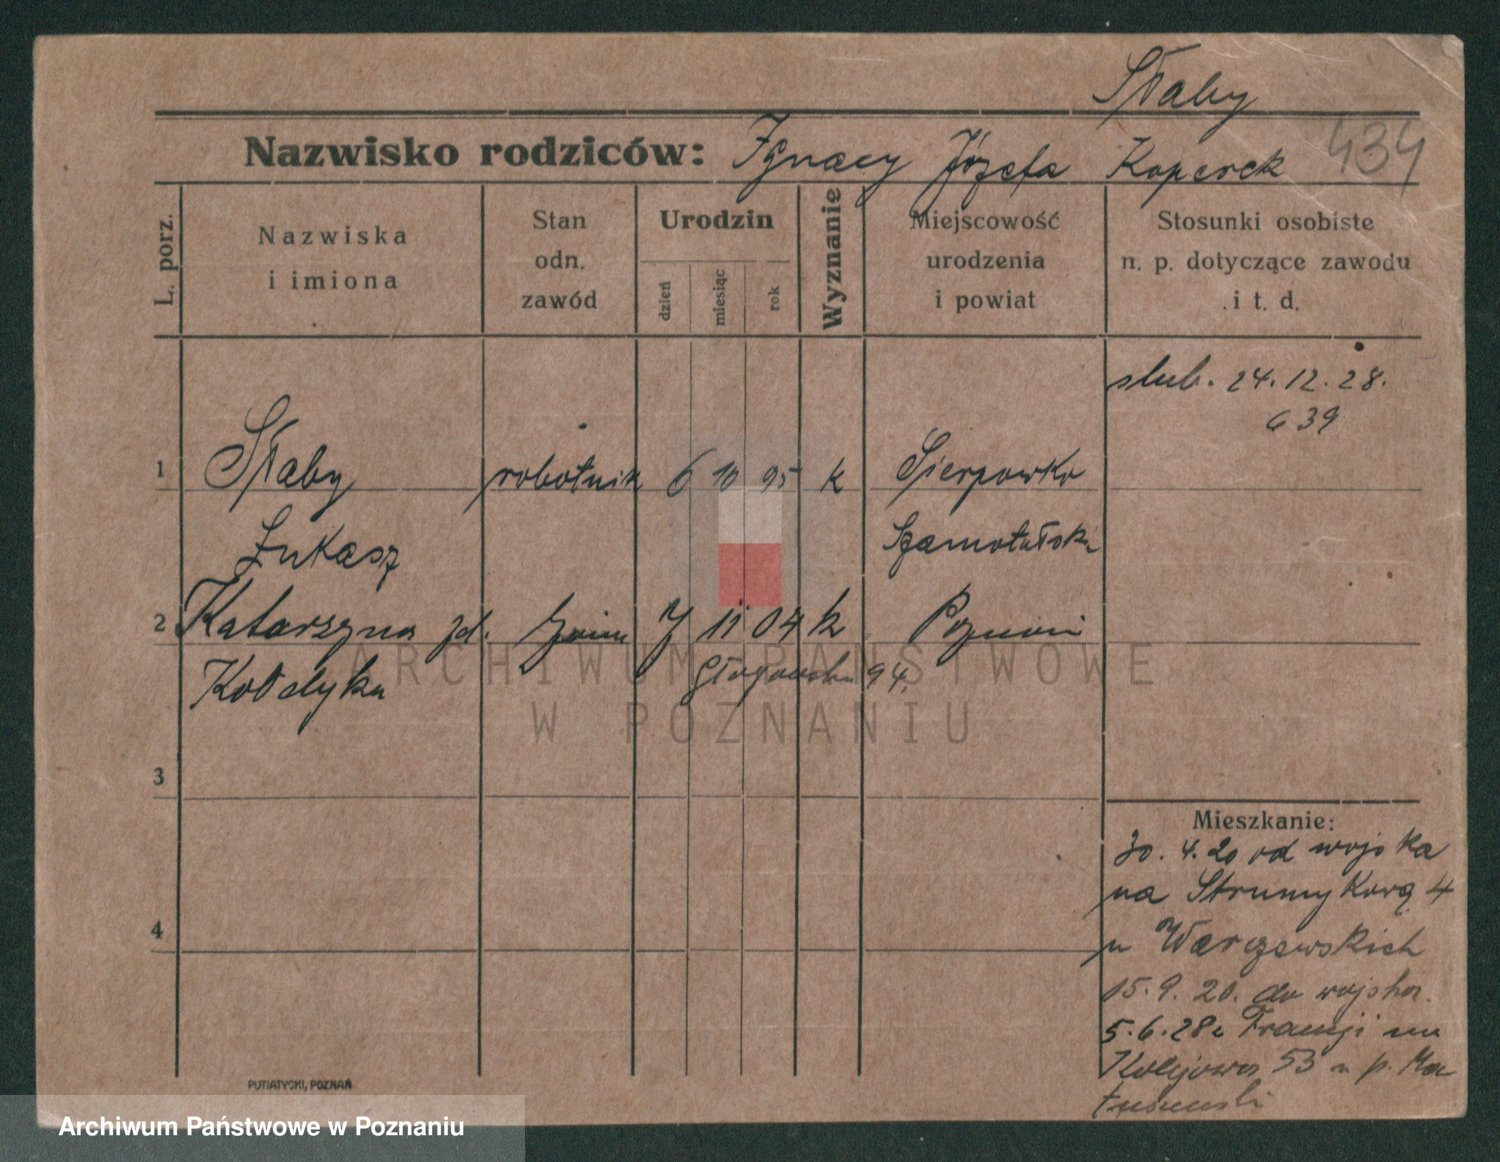 Słaby
Nazwisko rodziców: Ignacy Józefa Koperek 434
L. porz.
Nazwiska i imiona
Stan odn. zawód
Urodzin
dzień miesiąc rok
Wyznanie
Miejscowość urodzenia i powiat
Stosunki osobiste n. p. dotyczące zawodu i t. d.
ślub. 24.12.28.
639
1 Słaby robotnik 6 10 95 k Sierpowko
Łukasz Szamotulski
2 Katarzyna zd. 7 11 04 k Poznań
Kołdyka Głogowska 94.
ARCHIWUM PAŃSTWOWE
W POZNANIU
3
4
Mieszkanie:
30.4.20 od wojska
na Strumykową 4
u Warszewskich
15.9.20. do wojska.
5.6.28 z Francji na
Kolejowa 53 u p. Ma
PUTIATYCKI, POZNAŃ
Archiwum Państwowe w Poznaniu